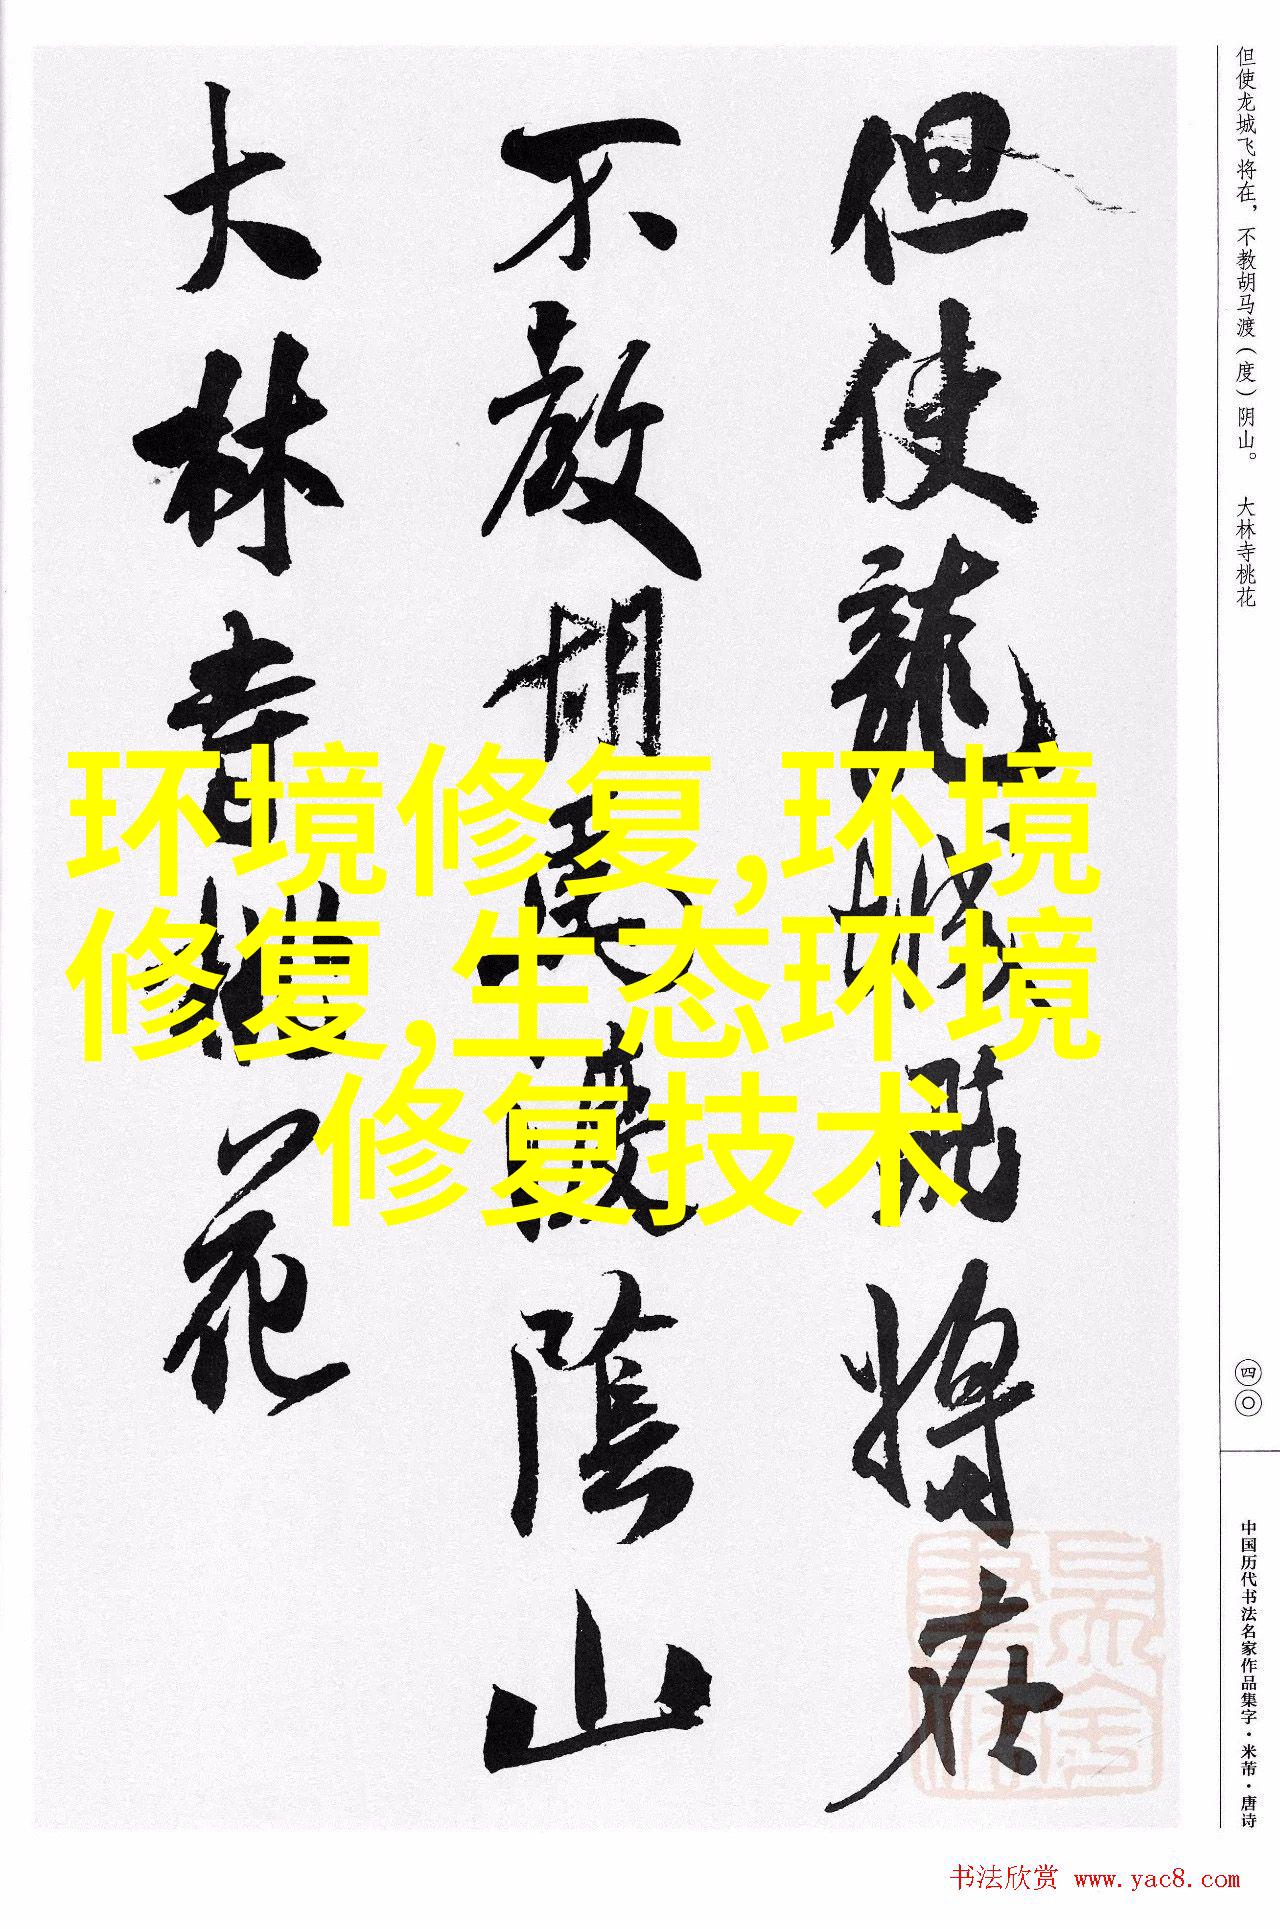 但使龍城飛將在
不教胡馬渡陰山
大林寺桃花
环境修复,环境
修复,生态环境
修复技术
但使龙城飞将在，不教胡马渡（度）阴山。 大林寺桃花
四〇
中国历代书法名家作品集字·米芾·唐诗
书法欣赏 www.yac8.com